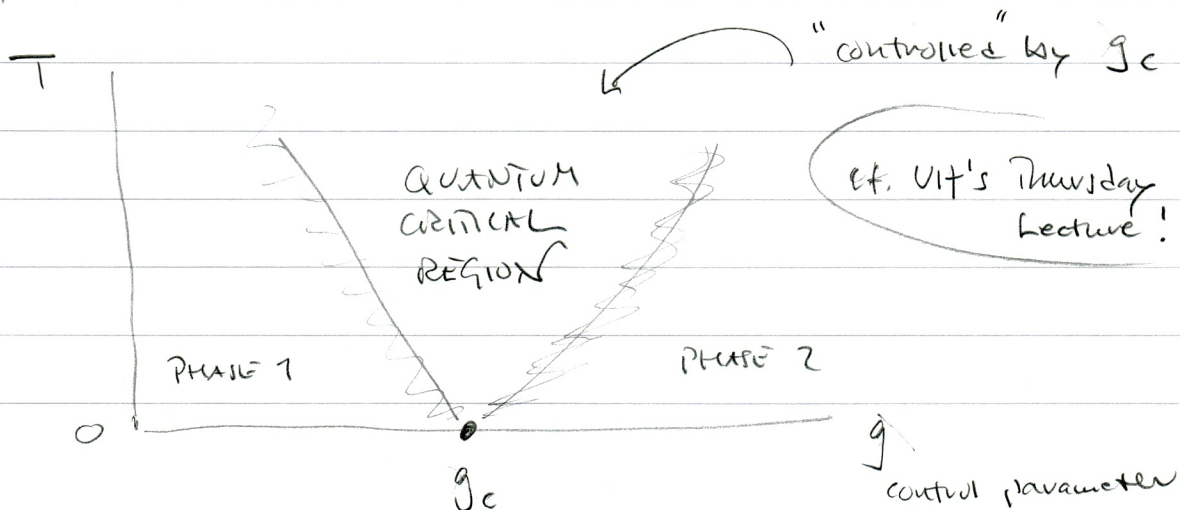 T
"controlled" by gc
QUANTUM
CRITICAL
REGION
cf. Ulf's Thursday
Lecture!
PHASE 1
PHASE 2
0
gc
g
control parameter